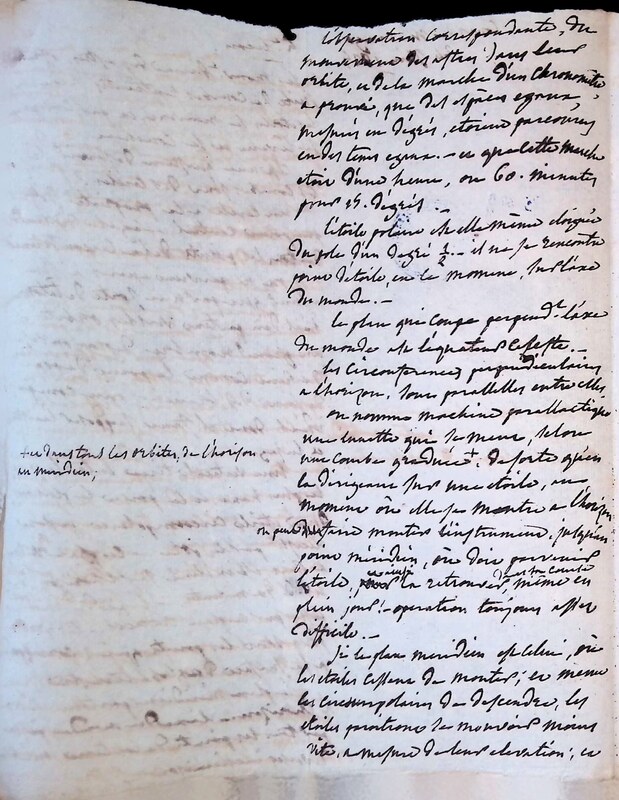 L'observation correspondante, du
mouvement des astres dans leur
orbite, et de la marche d'un chronomètre
a prouvé, que des espaces egaux,
mesurés en dégrés, etoient parcourus
en des tems egaux. - et que cette marche
etoit d'une heure, ou 60. minutes
pour 15. dégrés. -
l'étoile polaire est elle même eloignée
du pole d'un degré 1/2. - il ne se rencontre
point d'étoile, en ce moment, sur l'axe
du monde. -
le plan qui coupe perpend.lt l'axe
du monde est l'équateur celeste. -
les circonferences perpendiculaires
a l'horizon, sont parallelles entre elles
on nomme machine parallactique
une lunette qui se meut, selon
une courbe graduée +. de sorte qu'en
+ et dans tous les orbites, de l'horison
au meridien;
la dirigeant sur une etoile, au
moment où elle se montre a l'horizon
on peut faire monter l'instrument, jusqu'au
point méridien, où doit parvenir
l'étoile, la retrouver même en
plein jour! - operation toujours assez
difficile. -
Si le plan meridien est celui, où
les etoiles cessent de monter; et même
les circumpolaires de descendre, les
etoiles paroitront se mouvoir moins
vite, a mesure de leur elevation; et